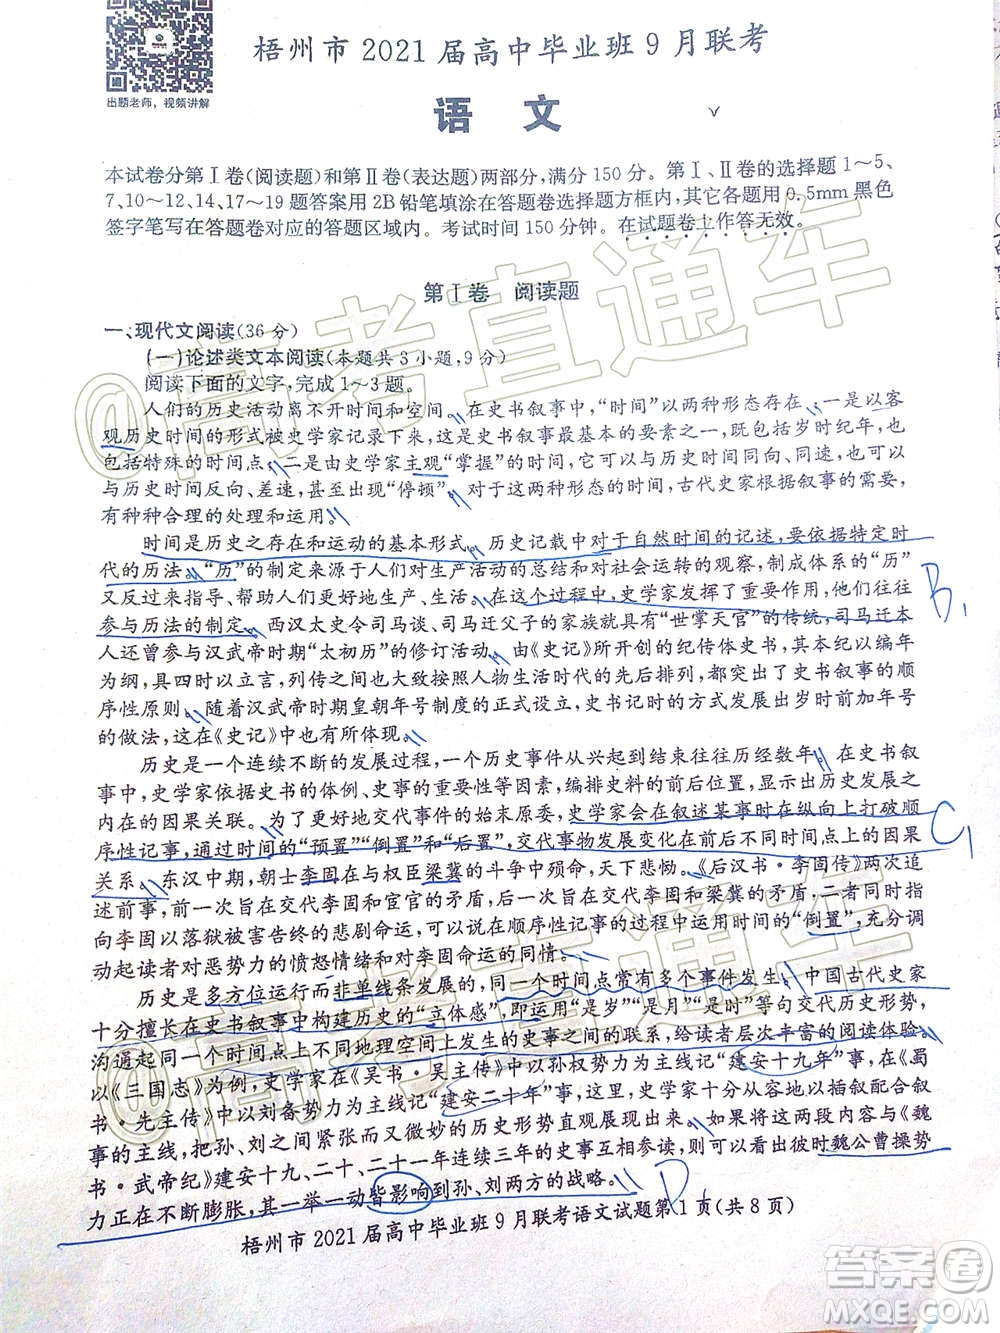 出题老师，视频讲解
梧州市2021届高中毕业班9月联考
语 文
本试卷分第Ⅰ卷(阅读题)和第Ⅱ卷(表达题)两部分,满分150分。第Ⅰ、Ⅱ卷的选择题1~5、
7、10~12、14、17~19题答案用2B铅笔填涂在答题卷选择题方框内,其它各题用0.5mm黑色
签字笔写在答题卷对应的答题区域内。考试时间150分钟。在试题卷上作答无效。
第Ⅰ卷 阅读题
一、现代文阅读(36分)
(一)论述类文本阅读(本题共3小题,9分)
阅读下面的文字,完成1~3题。
人们的历史活动离不开时间和空间。在史书叙事中,“时间”以两种形态存在:一是以客
观历史时间的形式被史学家记录下来,这是史书叙事最基本的要素之一,既包括岁时纪年,也
包括特殊的时间点;二是由史学家主观“掌握”的时间,它可以与历史叙事时间同步,也可以
与历史时间反向、差速,甚至出现“停顿”。对于这两种形态的时间,古代史家根据叙事的需要,
有种种合理的处理和运用。
时间是历史之存在和运动的基本形式。历史记载中对于自然时间的记述,要依据特定时
代的历法。“历”的制定来源于人们对生产活动的总结和对社会运转的观察,制成体系的“历”
又反过来指导、帮助人们更好地生产、生活。在这个过程中,史学家发挥了重要作用,他们往往
参与历法的制定。西汉太史令司马谈、司马迁父子的家族就具有“世掌天官”的传统,司马迁本
人还曾参与汉武帝时期“太初历”的修订活动。由《史记》所开创的纪传体史书,其本纪以编年
为纲,具四时以立言,列传之间也大致按照人物生活时代的先后排列,都突出了史书叙事的顺
序性原则。随着汉武帝时期皇朝年号制度的正式设立,史书记时的方式发展出以年号加年号
的做法,这在《史记》中也有所体现。
历史是一个连续不断的发展过程,一个历史事件从兴起到结束往往历经数年。在史书叙
事中,史学家依据史书的体例、史事的重要性等因素,编排史料的先后顺序,显示出历史发展
内在的因果关联。为了更好地交代事件的始末原委,史学家会在叙述某事时在纵向上打破顺
序性记事,通过时间的“预置”“倒置”和“后置”,交代事物发展变化在前后不同时间点上的因果
关系。东汉中期,朝士李固在与权臣梁冀的斗争中殒命,天下悲恸。《后汉书·李固传》两次追
述前事,前一次旨在交代李固和宦官的矛盾,后一次旨在交代李固和梁冀的矛盾,二者同为导
向李固以落狱被害告终的悲剧命运,可以看出史家在顺序性记事的过程中运用时间的“倒置”,充分调
动起读者对恶势力的愤怒情绪和对李固命运的同情。
历史是多方位运行而非单线条发展的,同一个时间点常有多个事件发生。中国古代史家
十分擅长在史书叙事中构建历史的“立体感”,即运用“是岁”“是月”“是时”等句交代历史形势,
沟通起同一个时间点不同地理空间上发生的史事之间的联系,给读者层次丰富的阅读体验。
以《三国志》为例,史学家在《吴书·吴主传》中以孙权势力为主线记“建安十九年”事,在《蜀
书·先主传》中以刘备势力为主线记“建安二十年”事,史学家分从容地以插叙配合叙
事的主线,把孙、刘之间紧张而又微妙的历史形势直观展现出来。如果将这两段内容与《魏
书·武帝纪》建安十九、二十、二十一年连续三年的史事互相参读,则可以看出彼时魏公曹操势
力正在不断膨胀,其一举一动皆影响到孙、刘两方的战略。
B1
C1
D
梧州市2021届高中毕业班9月联考语文试题第1页(共8页)
@高考直通车
@高考直通车
答案圈
MXQE.COM